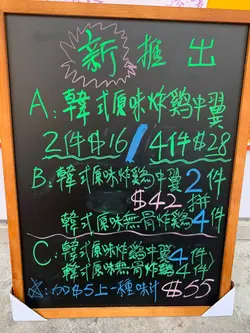 新 推 出
A:韓式原味炸鷄中翼
2件$16/4件$28
B:韓式原味炸鷄中翼2件
$42拼
韓式原味無骨炸鷄4件
C:韓式原味炸鷄中翼4件
韓式原味無骨炸鷄4件
$55
☆:加$5上一種味汁